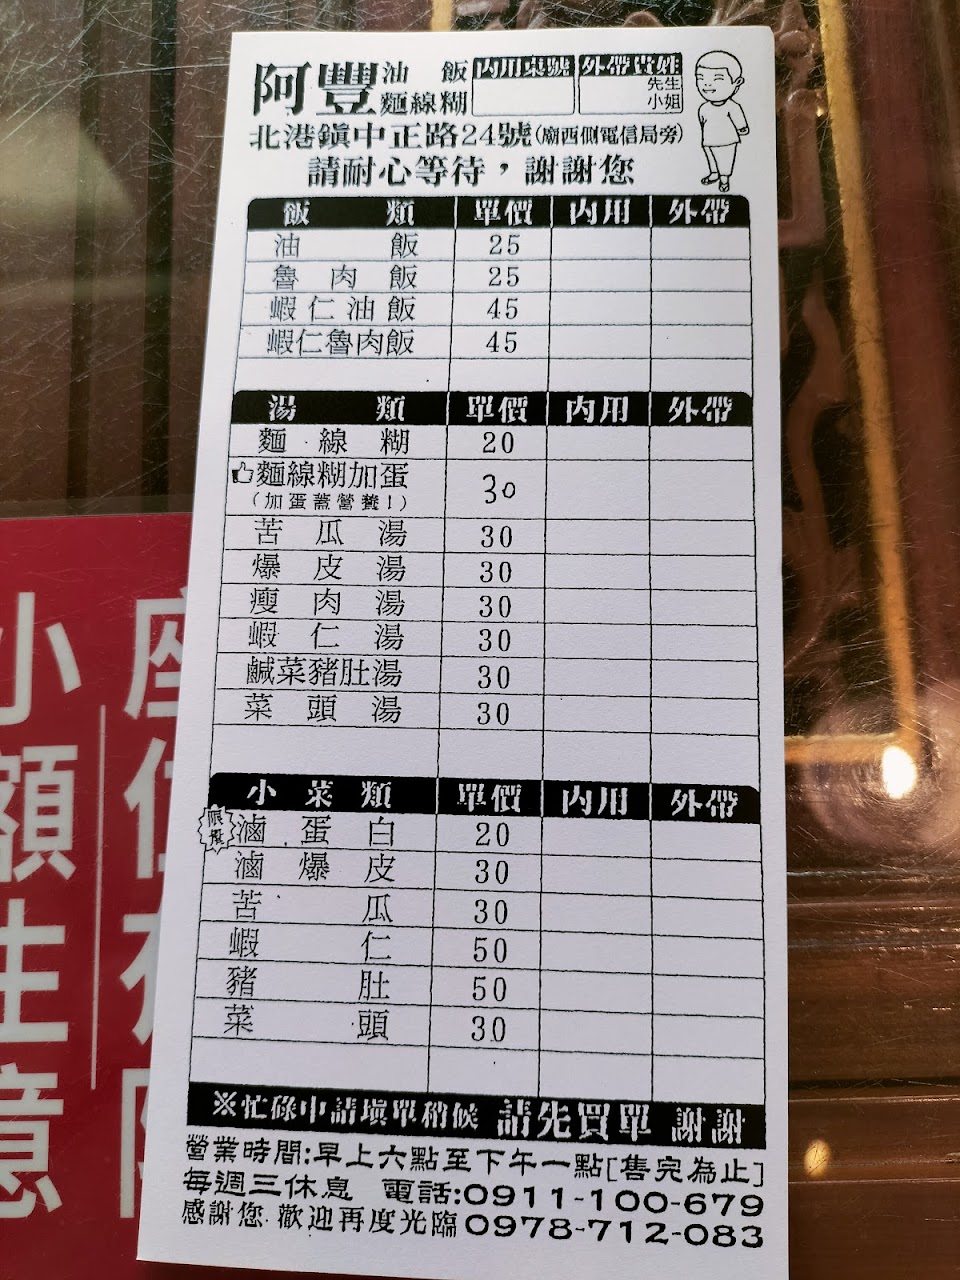 阿豐 油飯 麵線糊 內用桌號 外帶貴姓
先生
小姐
北港鎮中正路24號(廟西側電信局旁)
請耐心等待，謝謝您
飯類 單價 內用 外帶
油飯 25
魯肉飯 25
蝦仁油飯 45
蝦仁魯肉飯 45
湯類 單價 內用 外帶
麵線糊 20
麵線糊加蛋 30
(加蛋蓋營養!)
苦瓜湯 30
爆皮湯 30
瘦肉湯 30
蝦仁湯 30
鹹菜豬肚湯 30
菜頭湯 30
小菜類 單價 內用 外帶
限量 滷蛋白 20
滷爆皮 30
苦瓜 30
蝦仁 50
豬肚 50
菜頭 30
※忙碌中請填單稍候 請先買單 謝謝
營業時間:早上六點至下午一點[售完為止]
每週三休息 電話:0911-100-679
感謝您 歡迎再度光臨 0978-712-083
小額生意
座位有